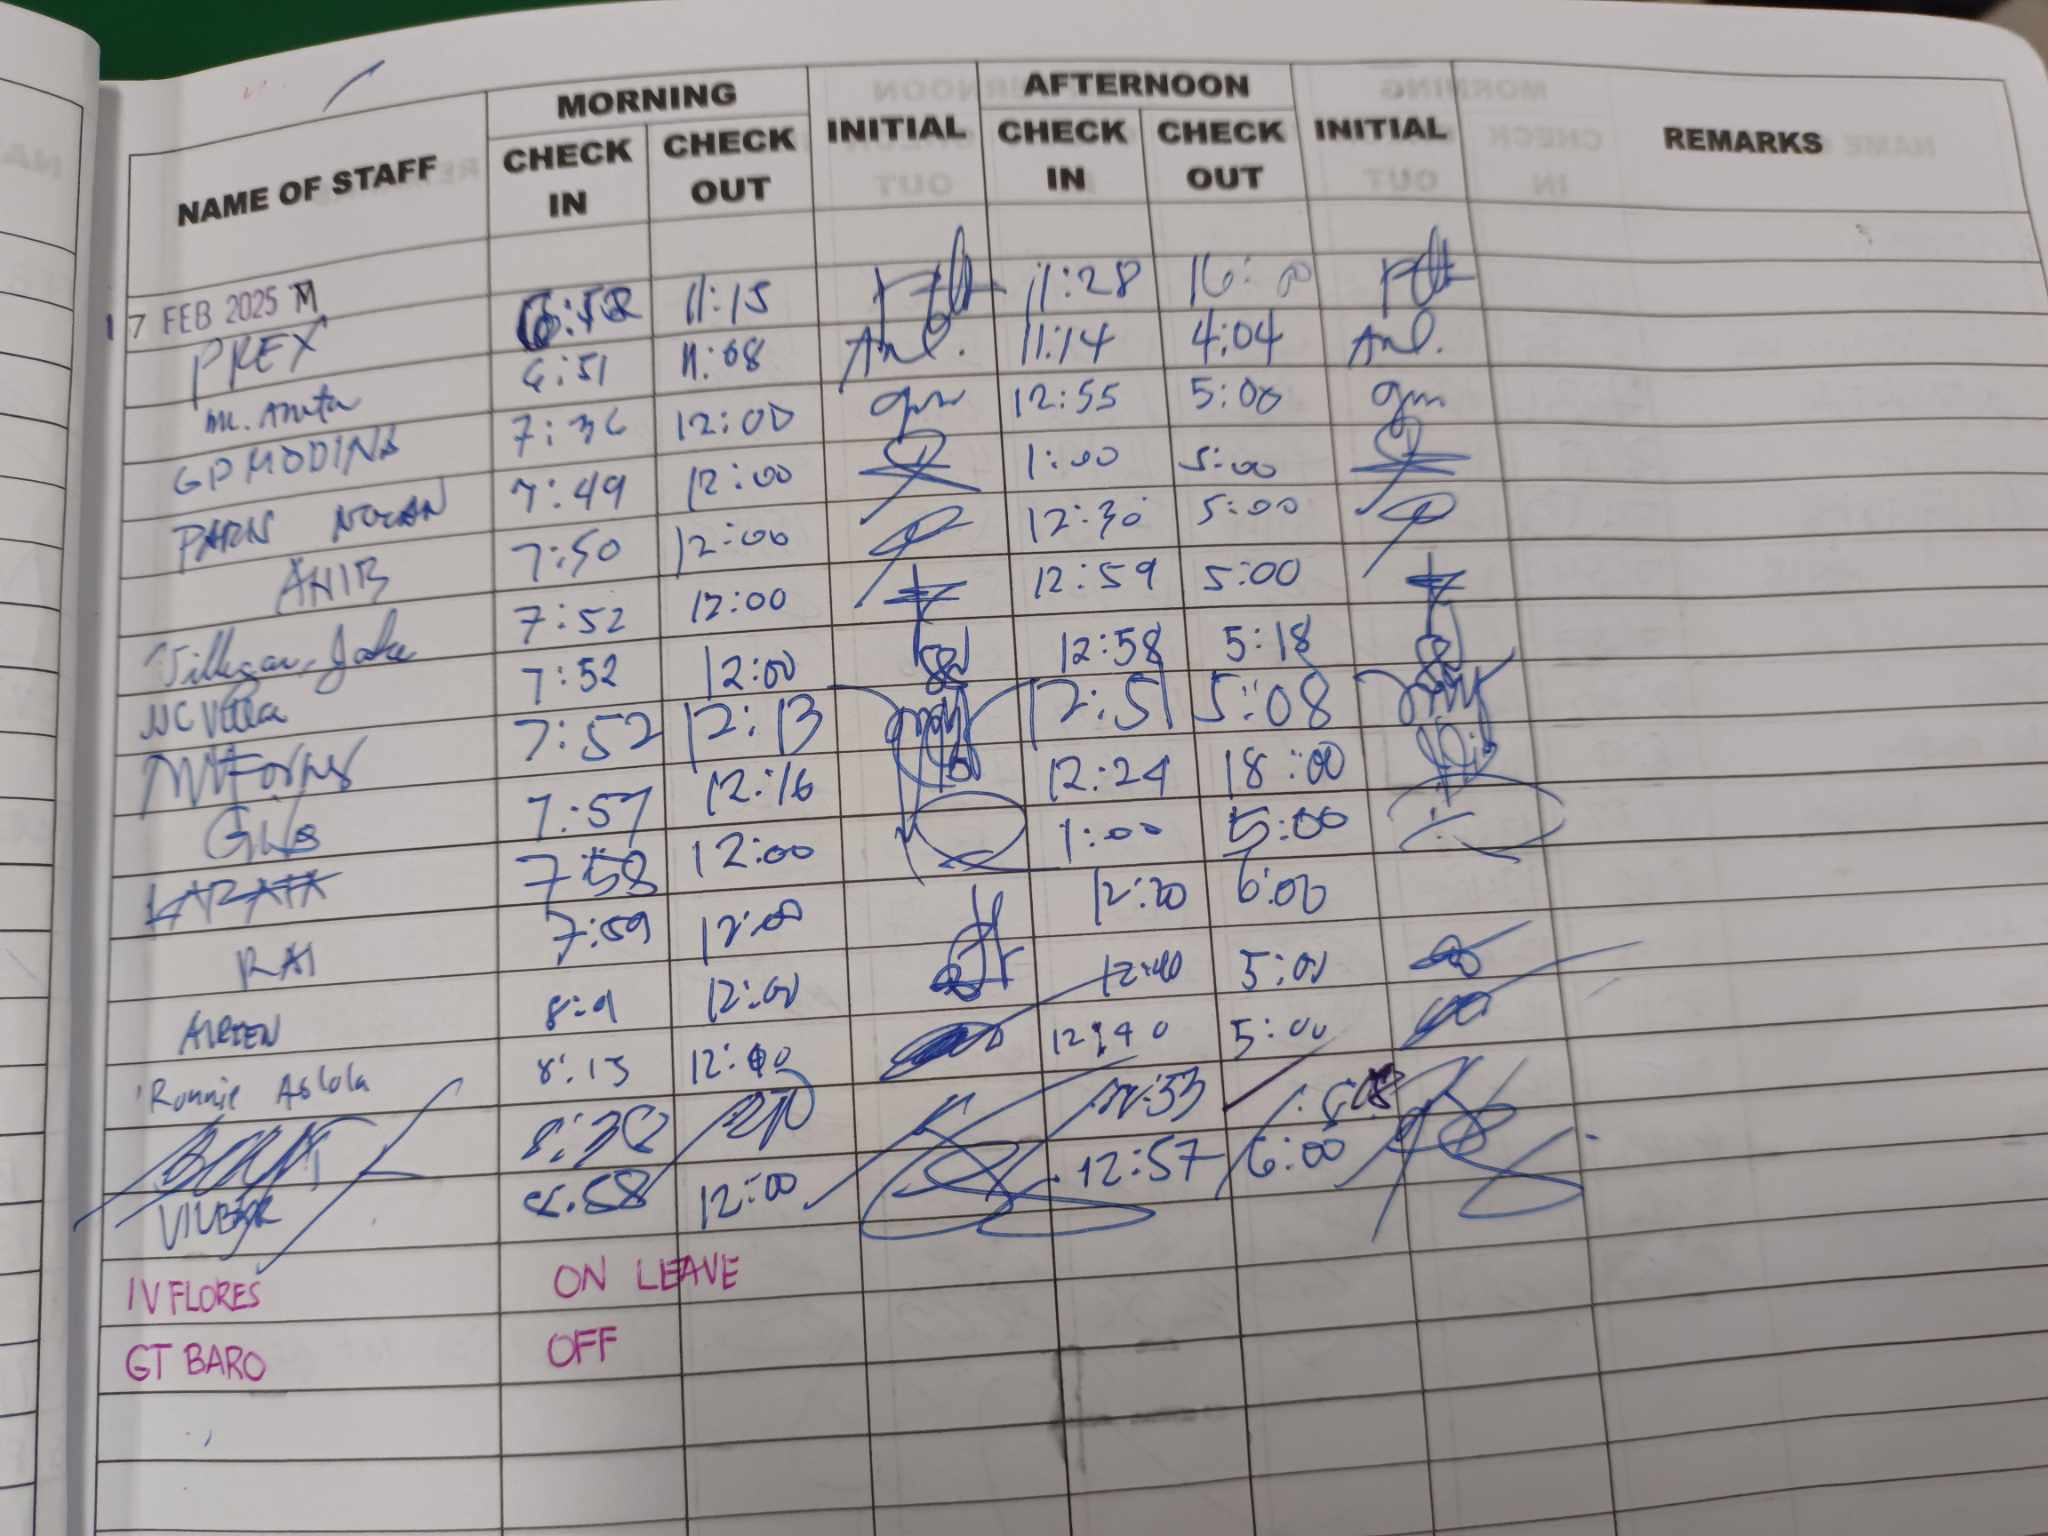 NAME OF STAFF MORNING CHECK IN CHECK OUT INITIAL AFTERNOON CHECK IN CHECK OUT INITIAL REMARKS
17 FEB 2025 M
PREX 11:15 11:28 16:00
Mc. Anita 6:51 11:08 Anl. 11:14 4:04 Anl.
GPMODINA 7:36 12:00 gm 12:55 5:00 gm
PARN 7:49 12:00 1:00 5:00
AHIB 7:50 12:00 12:30 5:00
Jake 7:52 12:00 12:59 5:00
NC Villa 7:52 12:00 12:58 5:18
7:52 12:13 12:51 5:08
7:57 12:16 12:24 18:00
7:58 12:00 1:00 5:00
RAI 7:59 12:00 12:20 6:00
8:01 12:00 12:40 5:00
Ronnie Aslola 8:15 12:00 12:40 5:00
8:30 12:33
12:00 12:57 6:00
IV FLORES ON LEAVE
GT BARO OFF